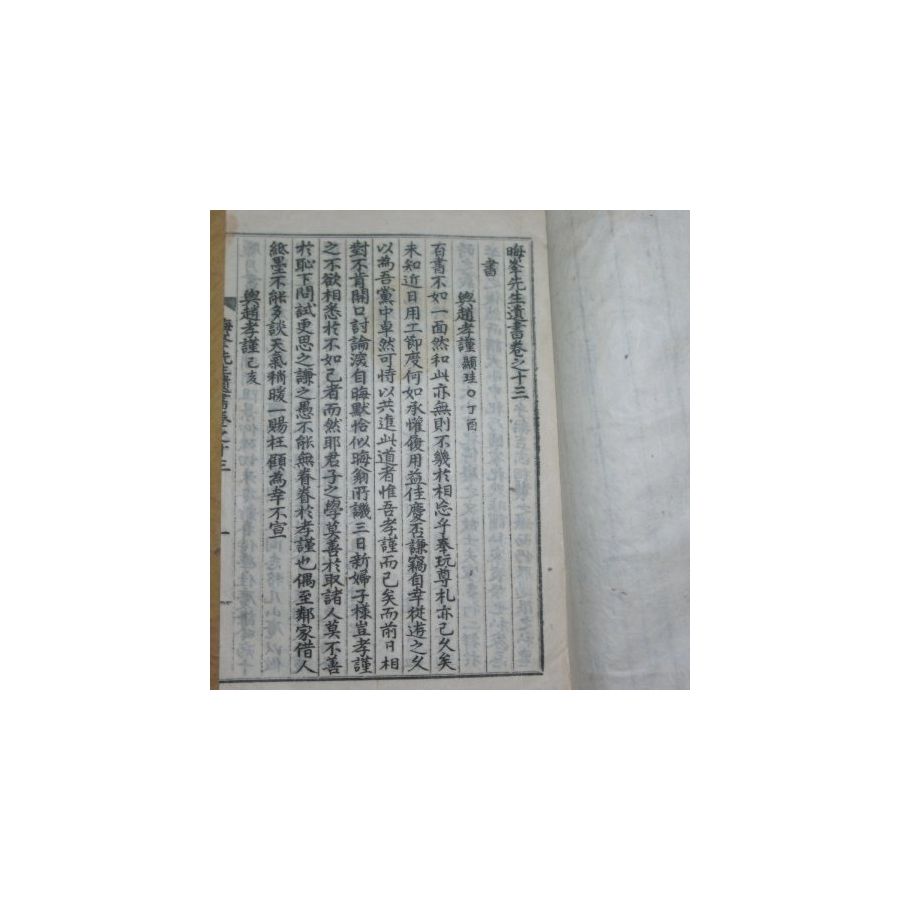 晦峯先生遺書卷之十三
書
與趙孝謹 顯珪○丁酉
百書不如一面然和此亦無則不幾於相忘乎奉玩尊札亦已久矣
未知近日用工節度何如承懽履用益佳慶否謙竊自幸從遊之久
以為吾黨中卓然可恃以共進此道者惟吾孝謹而已矣而前日相
對不肯開口討論深自晦默恰似晦翁所譏三日新婦子樣豈孝謹
之不欲相悉於不如己者而然耶君子之學莫善於取諸人莫不善
於恥下問試更思之謙之愚不能無眷眷於孝謹也偶至鄰家借人
紙墨不能多談天氣稍暖一賜枉顧為幸不宣
與趙孝謹 己亥
晦峯先生遺書卷之十三 一